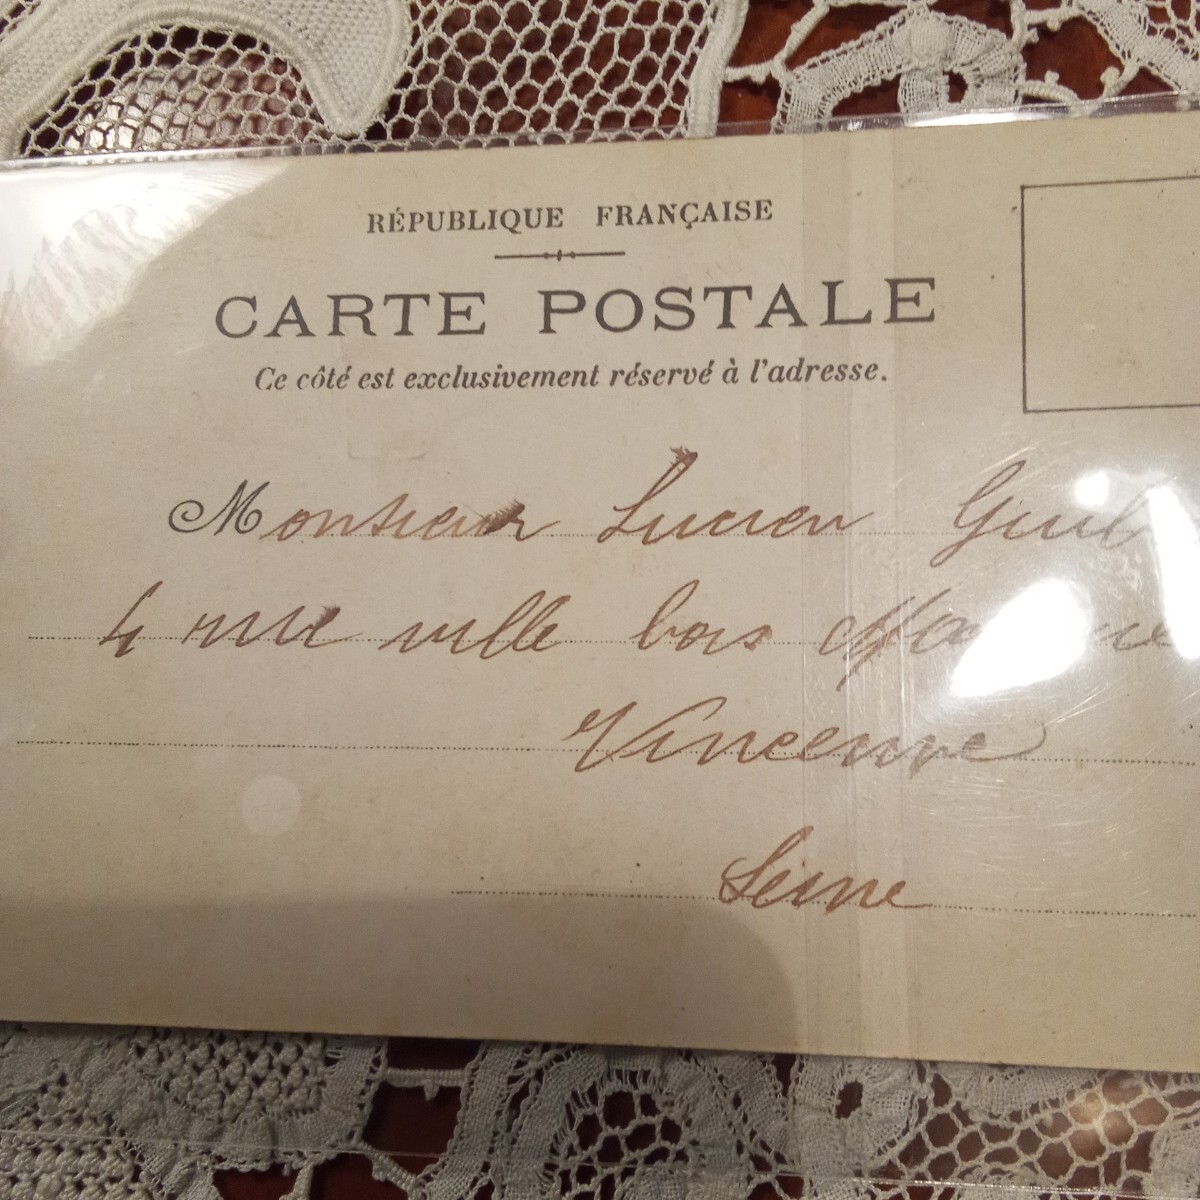 RÉPUBLIQUE FRANÇAISE
CARTE POSTALE
Ce côté est exclusivement réservé à l'adresse.
Monsieur Lucien
4 rue ville bois
Vincenne
Seine